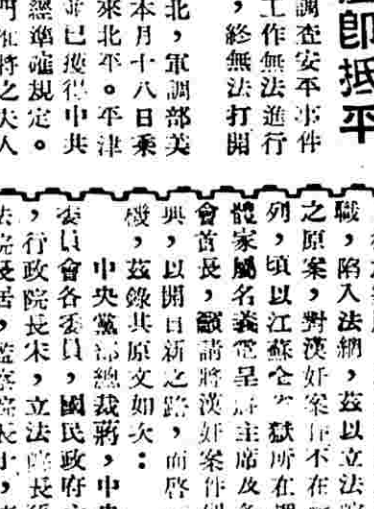 師抵平
調查安平事件
工作無法進行
，終無法打開
北，軍調部美
本月十八日乘
來北平。平津
並已獲得中共
經準確規定。
之夫人
職，陷入法網，茲以立法
之原案，對漢奸案件不在
列，頃以江蘇全省獄所在
體家屬名義電呈府主席及各
會首長，籲請將漢奸案件
典，以開日新之路，而啓
機，茲錄其原文如次：
中央黨部總裁蔣，中央
委員會各委員，國民政府
，行政院長宋，立法院長
法院長居，監察院長